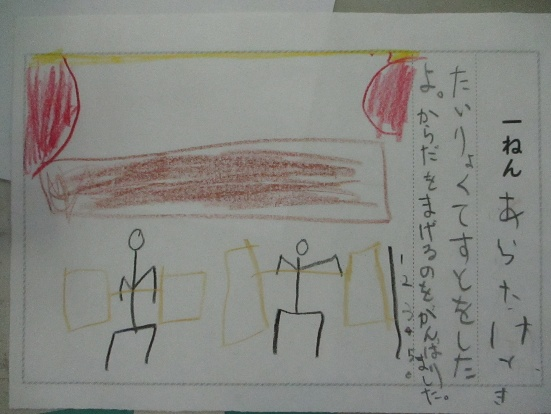 一ねん あらたけ
たいりょくてすとをした
よ。からだをまげるのをがんばりました。
1
2
3
4
5
6